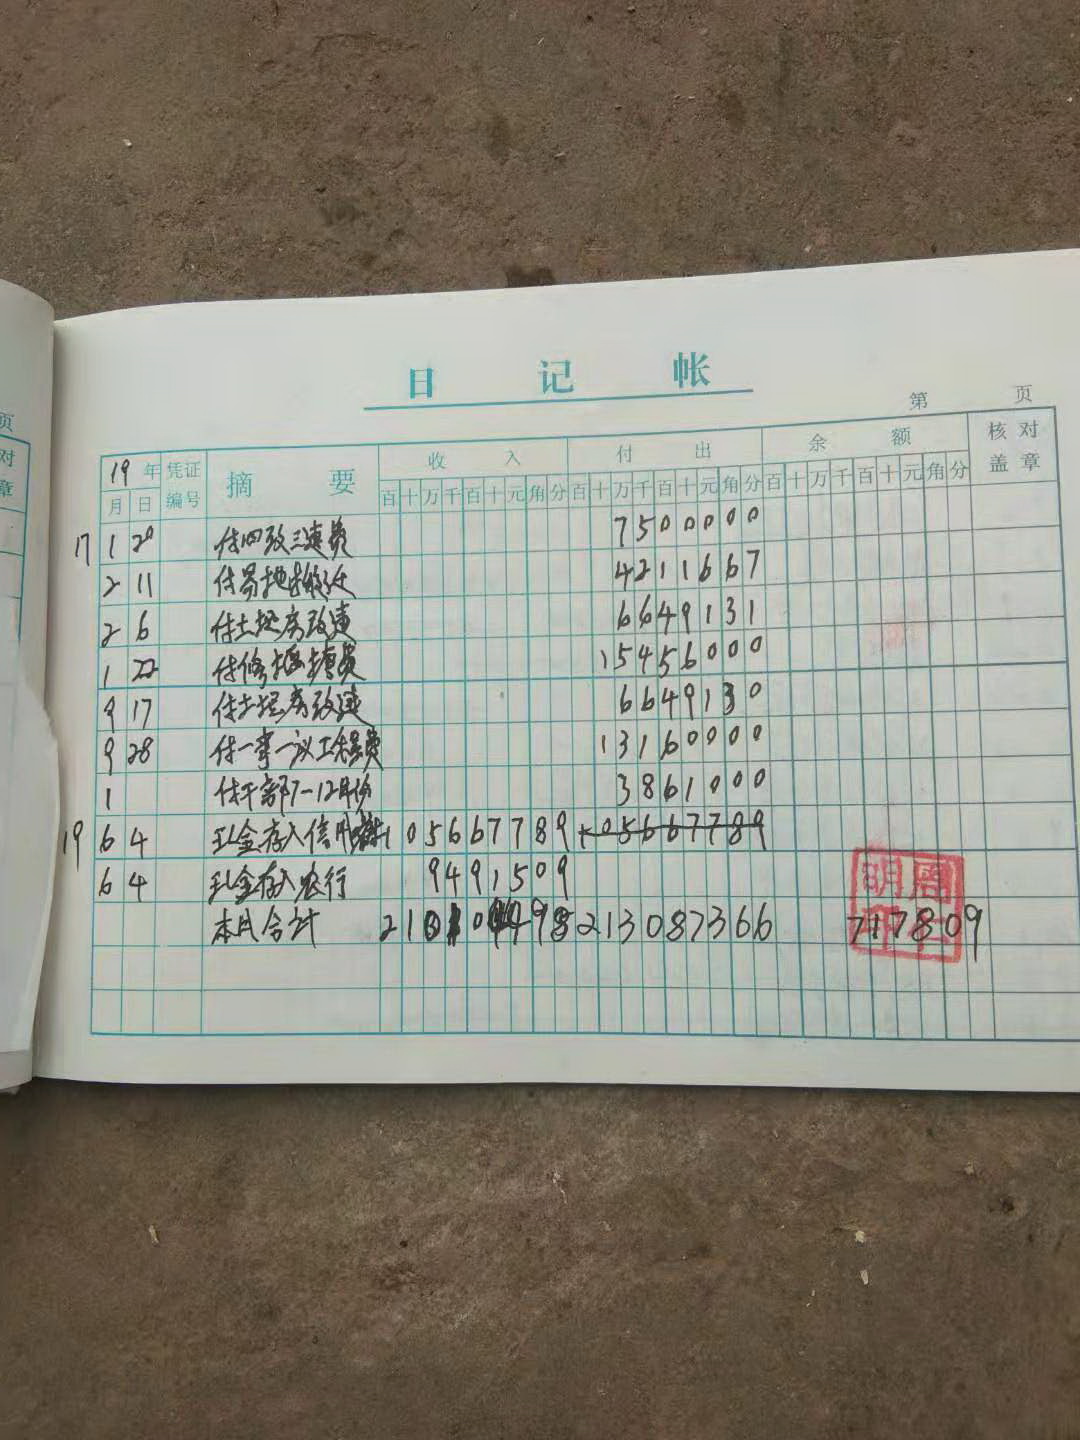 页
对
章
日 记 帐
第 页
19年 凭证编号 摘 要 收 入 付 出 余 额 核对盖章
月 日 百十万千百十元角分 百十万千百十元角分 百十万千百十元角分
17 1 20 付四改三建费 7500000
2 11 付易地搬迁 4211667
2 6 付土坯房改建 6649131
1 22 付修 费 15456000
9 17 付土坯房改建 6649130
9 28 付一事一议工程费 13160000
1 付干部7-12月份 3861000
19 6 4 现金存入信用 105667789 105667789
6 4 现金存入农行 9491509
本月合计 213087366 717809
周明